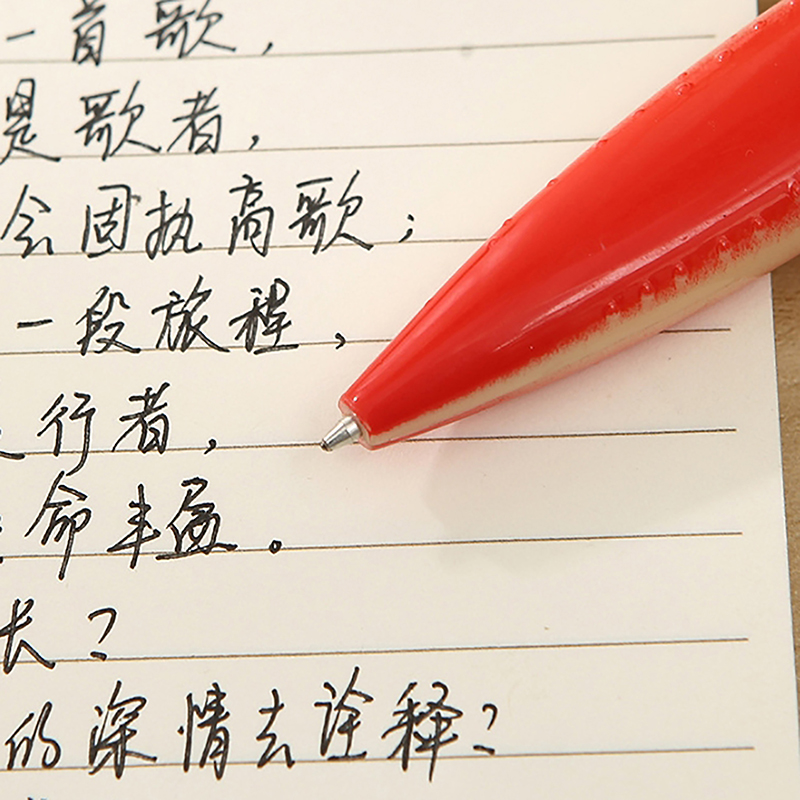 一首歌，
是歌者，
会固执高歌；
一段旅程，
行者，
命丰盈。
长？
的深情去诠释？